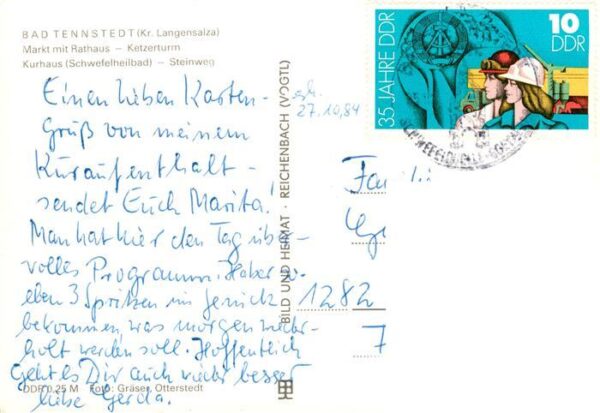 BAD TENNSTEDT (Kr. Langensalza)
Markt mit Rathaus – Ketzerturm
Kurhaus (Schwefelheilbad) – Steinweg
Einen lieben Karten-
Gruß von meinem
Kuraufenthalt -
sendet Euch Marita!
Man hat hier den Tag über
volles Programm. Habe
eben 3 Spritzen ins Genick
bekommen, was morgen wieder-
holt werden soll. Hoffentlich
geht es Dir auch wieder besser
liebe Gerda.
DDR 0,25 M Foto: Gräser, Otterstedt
27.10.84
BILD UND HEIMAT · REICHENBACH (VOGTL)
35 JAHRE DDR
10
DDR
1282
7